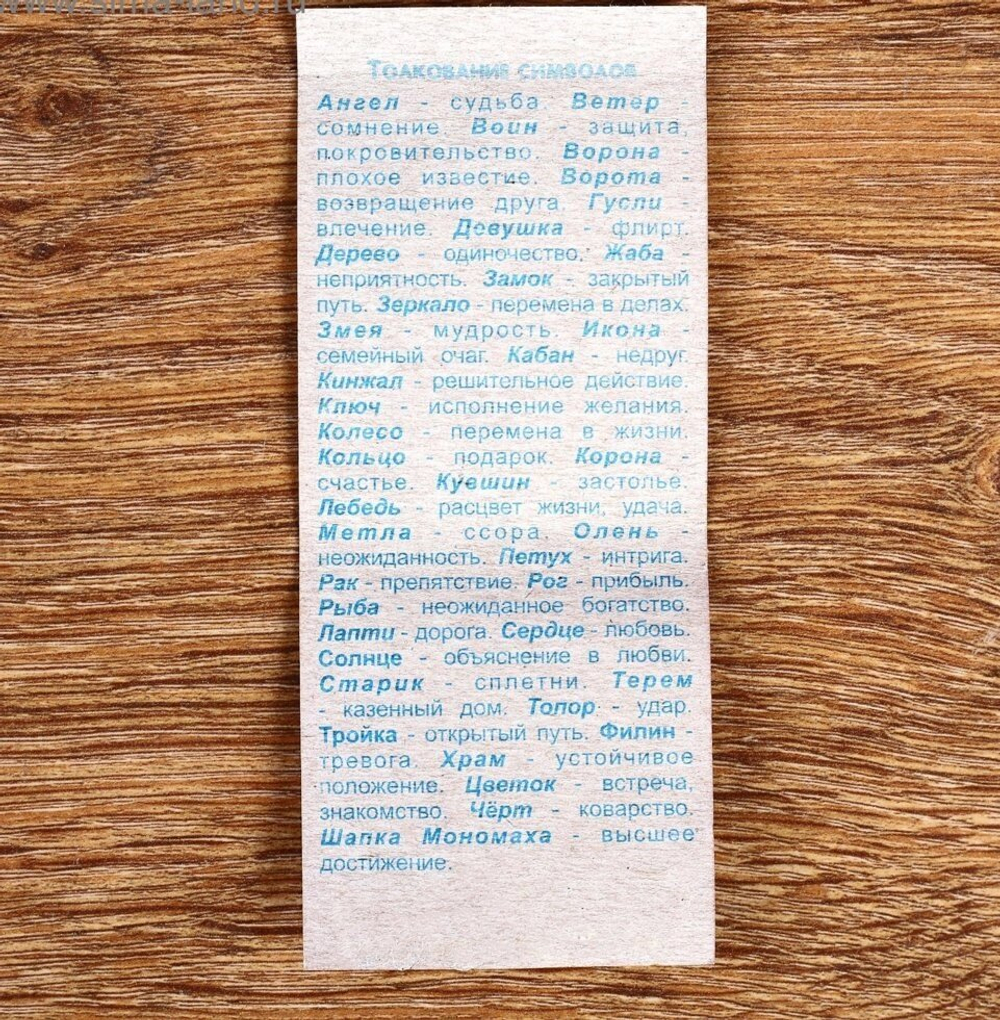 Толкование символов
Ангел - судьба. Ветер -
сомнение. Воин - защита,
покровительство. Ворона -
плохое известие. Ворота -
возвращение друга. Гусли -
влечение. Девушка - флирт.
Дерево - одиночество. Жаба -
неприятность. Замок - закрытый
путь. Зеркало - перемена в делах.
Змея - мудрость. Икона -
семейный очаг. Кабан - недруг.
Кинжал - решительное действие.
Ключ - исполнение желания.
Колесо - перемена в жизни.
Кольцо - подарок. Корона -
счастье. Кувшин - застолье.
Лебедь - расцвет жизни, удача.
Метла - ссора. Олень -
неожиданность. Петух - интрига.
Рак - препятствие. Рог - прибыль.
Рыба - неожиданное богатство.
Лапти - дорога. Сердце - любовь.
Солнце - объяснение в любви.
Старик - сплетни. Терем
- казенный дом. Топор - удар.
Тройка - открытый путь. Филин -
тревога. Храм - устойчивое
положение. Цветок - встреча,
знакомство. Чёрт - коварство.
Шапка Мономаха - высшее
достижение.